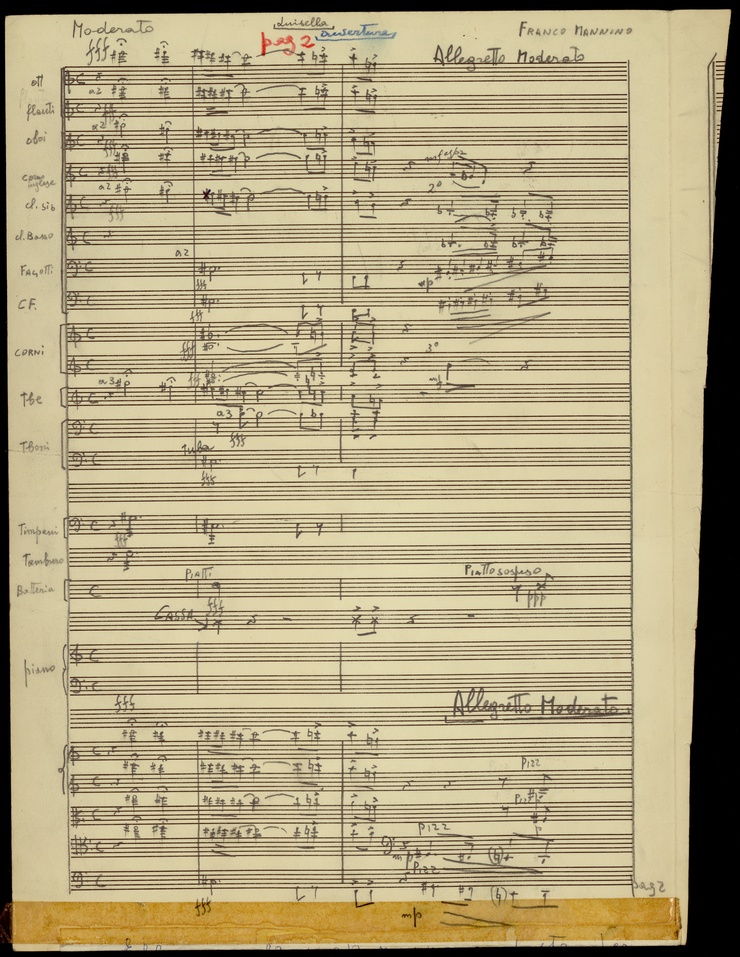 Luisella
Moderato
pag 2
Ouverture
FRANCO MANNINO
fff
Allegretto Moderato
ott
a2
flauti
fff
a2
oboi
fff
corno
inglese
a2
2°
cl. sib
fff
cl. Basso
a2
Fagotti
fff
mp
C.F.
fff
CORNI
fff
3°
fff
mf
a3
Tbe
a3
Tboni
fff
Tuba
fff
Timpani
fff
Tamburo
PIATTI
PIATTO SOSPESO
Batteria
fff
ppp
CASSA
piano
fff
Allegretto Moderato
PIZZ
PIZZ
PIZZ
mp
PIZZ
pag 2
fff
mp